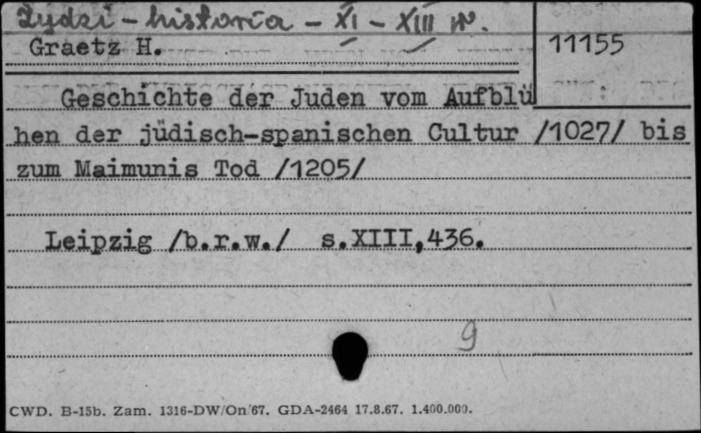 Żydzi - historia - XI - XIII w.
Graetz H.
11155
Geschichte der Juden vom Aufblü
hen der jüdisch-spanischen Cultur /1027/ bis
zum Maimunis Tod /1205/
Leipzig /b.r.w./ s.XIII,436.
9
CWD. B-15b. Zam. 1316-DW/On/67. GDA-2464 17.8.67. 1.400.000.